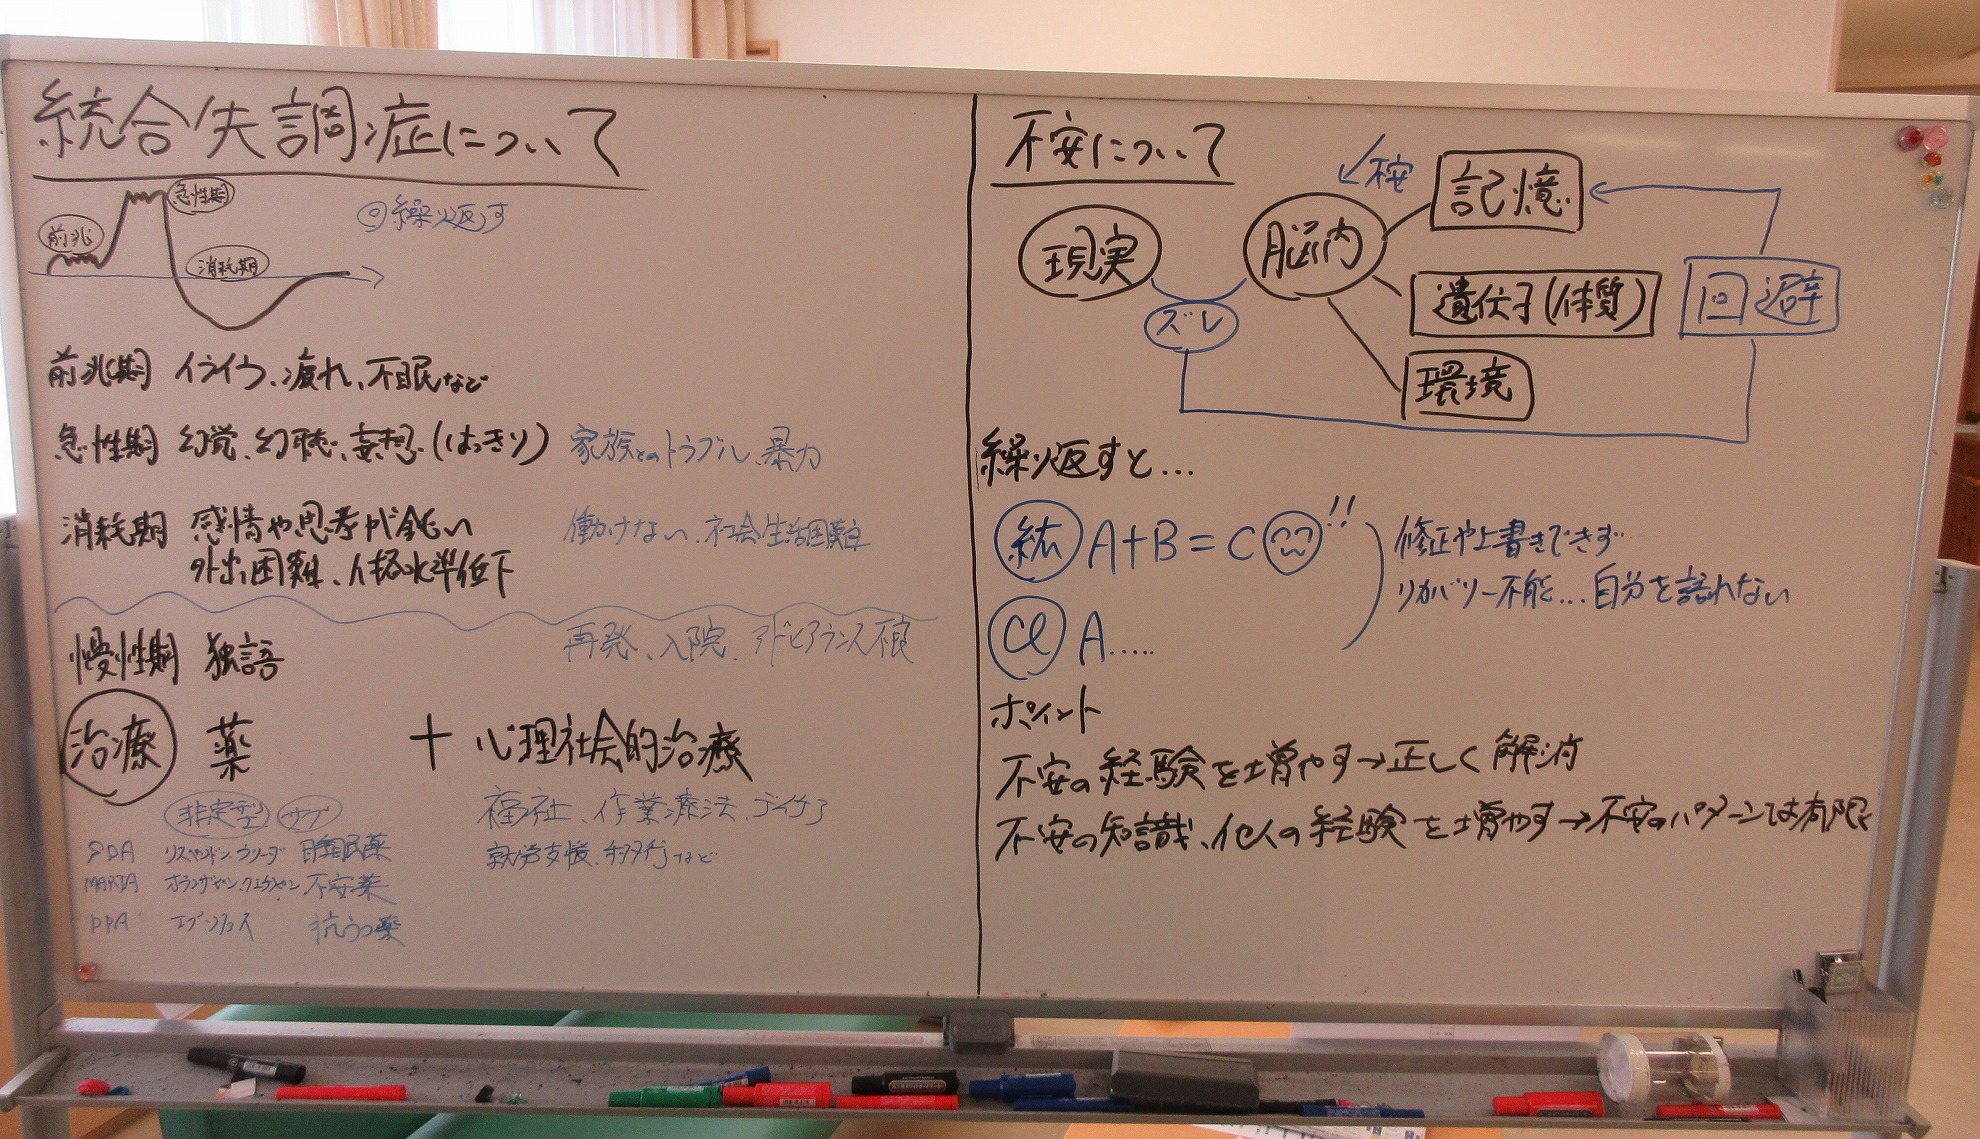 統合失調症について
急性期
前兆
消耗期
◎繰り返す
前兆期 イライラ、疲れ、不眠など
急性期 幻覚、幻聴、妄想(はっきり) 家族とのトラブル、暴力
消耗期 感情や思考が鈍い 働けない、社会生活困難
外出困難、人格水準低下
慢性期 独語 再発、入院、アドヒアランス不良
治療 薬 + 心理社会的治療
非定型 サブ 福祉、作業療法、デイケア
SDA リスペリドン、 睡眠薬 就労支援、 など
MARTA オランザピン、クエチアピン 不安薬
DPA エブリファイ 抗うつ薬
不安について
不安
記憶
現実
脳内
ズレ
遺伝子(体質)
回避
環境
繰り返すと...
統 A+B=C !!
修正や上書きできず
リカバリー不能...自分を語れない
A.....
ポイント
不安の経験を増やす→正しく解消
不安の知識、他人の経験を増やす→不安のパターンは有限